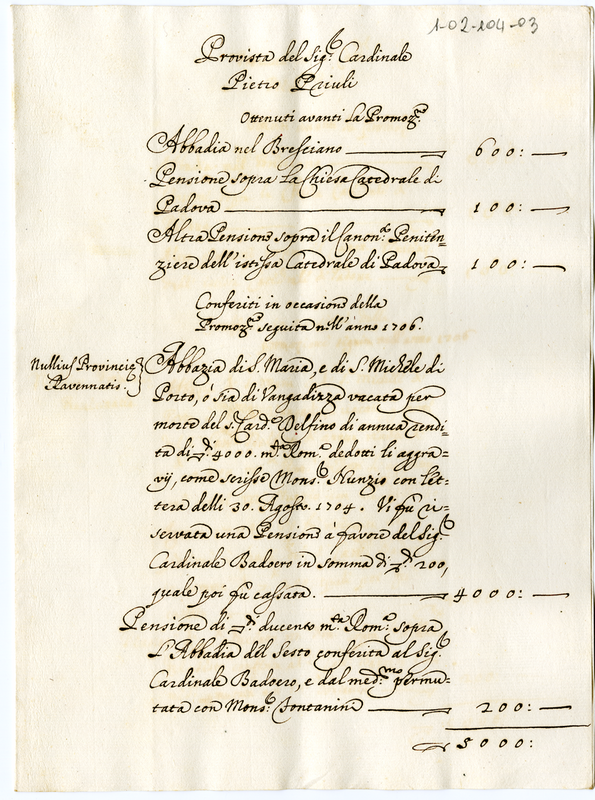 1-02-104-03
Provista del Sig.r Cardinale
Pietro Priuli
Ottenuti avanti la Promoz.ne
Abbadia nel Bresciano — 600: —
Pensione sopra la Chiesa Catedrale di
Padova — 100: —
Altra Pensione sopra il Canon.to Peniten=
ziere dell'istessa Catedrale di Padova 100: —
Conferiti in occasione della
Promoz.ne seguita nell'anno 1706.
Nullius Provincię
Ravennatis.
Abbazia di S. Maria, e di S. Michele di
Porto, ó sia di Vangadizza vacata per
morte del s. Card. Delfino di annua rendi=
ta di 4000. m.ta Rom.a dedotti li aggra=
vij, come scrisse Mons.r Nunzio con let=
tera delli 30. Agosto. 1704. Vi fu ri=
servata una Pensione à favore del Sig.r
Cardinale Badoero in somma di 200,
quale poi fu cassata. — 4000: —
Pensione di ducento m.ta Rom.a sopra
l'Abbadia del Sesto conferita al Sig.r
Cardinale Badoero, e dal med.mo permu=
tata con Mons.r Fontanini — 200: —
5000: